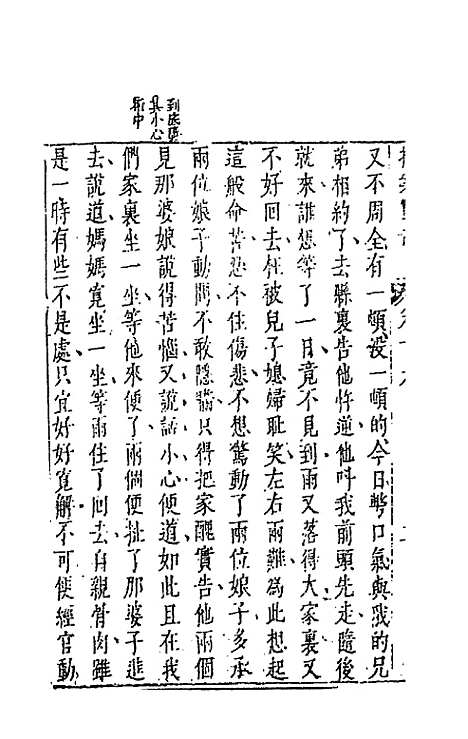 到底還
是小心
所中
又不周全有一頓沒一頓的今日彆口氣與我的兄
弟相約了去縣裏告他忤逆他呌我前頭先走隨後
就來誰想等了一日竟不見到雨又落得大家裏又
不好回去枉被兒子媳婦耻笑左右兩難爲此想起
這般命苦忍不住傷悲不想驚動了兩位娘子多承
兩位娘子動問不敢隱瞞只得把家醜實告他兩個
見那婆娘說得苦惱又說話小心便道如此且在我
們家裏坐一坐等他來便了兩個便扯了那婆子進
去說道媽媽寬坐一坐等雨住了回去自親骨肉雖
是一時有些不是處只宜好好寬解不可便經官動